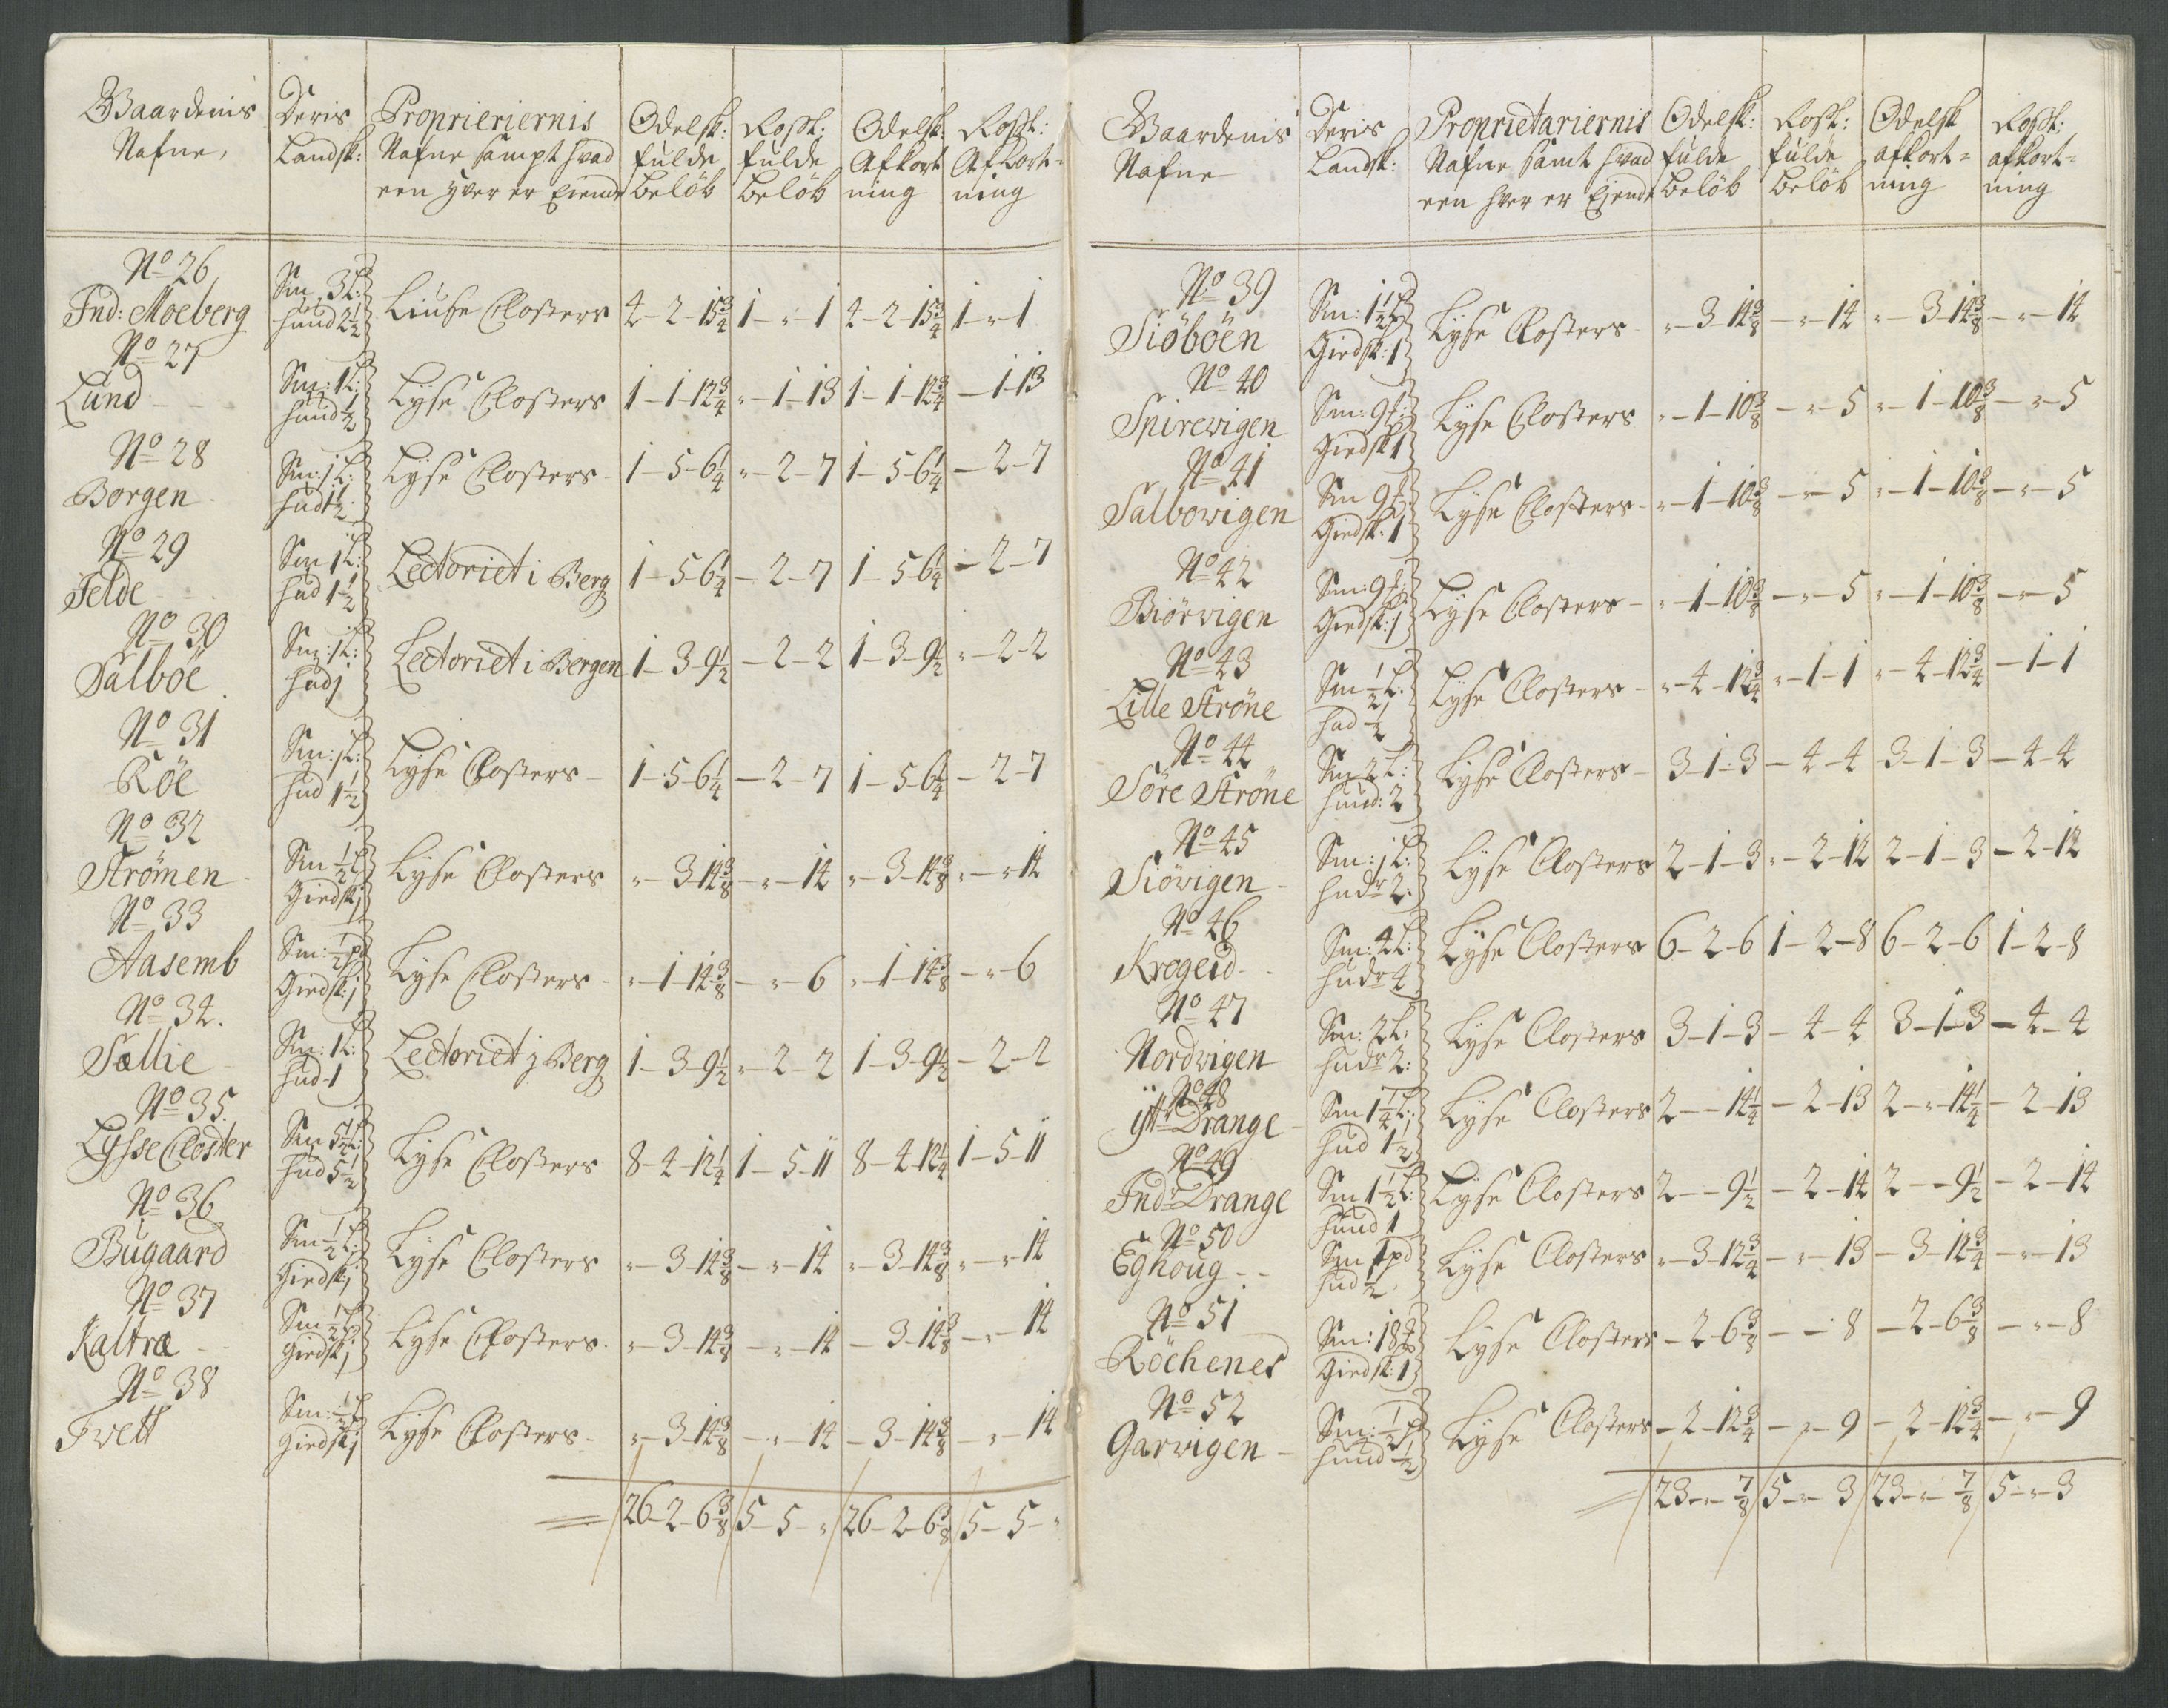 Gaardenis Nafne, | Deris Landsk: | Proprieriernis Nafne sampt hvad een hver er Eiende | Odelsk: fulde belöb | Rostt: fulde belöb | Odelsk: Afkort ning | Rostt: Afkort= ning
No 26 Ind: Moeberg | Sm 3 L: hund 2½ | Liuse Closters | 4-2-15¾ | 1-"-1 | 4-2-15¾ | 1-"-1
No 27 Lund | Sm: 1 L: hund ½ | Lyse Closters | 1-1-12¾ | "-1-13 | 1-1-12¾ | -1-13
No 28 Borgen | Sm: j L: hud 1½ | Lyse Closters | 1-5-6¼ | "-2-7 | 1-5-6¼ | -2-7
No 29 Felde | Sm 1 L: hud 1½ | Lectoriet i Berg | 1-5-6¼ | -2-7 | 1-5-6¼ | -2-7
No 30 Salböe | Sm: j L: hud j | Lectoriet i Bergen | 1-3-9½ | -2-2 | 1-3-9½ | "-2-2
No 31 Röe | Sm: j L: hud 1½ | Lyse Closters | 1-5-6¼ | -2-7 | 1-5-6¼ | -2-7
No 32 Strömen | Sm ½ L Giedsk: j | Lyse Closters | "-3-14⅜ | -"-14 | "-3-14⅜ | "-"-14
No 33 Aasemb | Sm: ½ pd Giedsk: j | Lyse Closters | "-1-14⅜ | -"-6 | "-1-14⅜ | -"-6
No 34. Sællie | Sm: 1 L: hud 1 | Lectoriet j Berg | 1-3-9½ | "-2-2 | 1-3-9½ | -2-2
No 35. Lysse Closter | Sm 5½ L: hud 5½ | Lyse Closters | 8-4-12¼ | 1-5-11 | 8-4-12¼ | 1-5-11
No 36 Bugaard | Sm ½ L: Giedsk: j | Lyse Closters | "-3-14⅜ | -"-14 | "-3-14⅜ | "-"-14
No 37 Kaltræ | Sm ½ L Giedsk: j | Lyse Closters | "-3-14⅜ | -"-14 | -3-14⅜ | -"-14
No 38 Tvett | Sm: ½ L Giedsk: j | Lyse Closters | "-3-14⅜ | -"-14 | -3-14⅜ | -"-14
26-2-6⅜ | 5-5-" | 26-2-6⅜ | 5-5-"
Gaardenis Nafne | Deris Landsk: | Proprietariernis Nafne samt hvad een hver er Ejende | Odelsk: fulde belöb | Rostt: fulde belöb | Odelsk afkort= ning | Rostt: afkort= ning
No 39 Siöböen | Sm: 1½ Giedsk: 1 | Lyse Closters | "-3-14⅜ | -"-14 | "-3-14⅜ | -"-14
No 40 Spirevigen | Sm: 9 Giedsk 1 | Lyse Closters | "-1-10⅜ | -"-5 | "-1-10⅜ | -"-5
No 41 Salbovigen | Sm 9 Giedsk: 1 | Lyse Closters | "-1-10⅜ | -"-5 | "-1-10⅜ | -"-5
No 42 Biörvigen | Sm: 9 Giedsk: 1 | Lyse Closters | "-1-10⅜ | -"-5 | "-1-10⅜ | -"-5
No 43 Lille Ströne | Sm ½ L: hud ½ | Lyse Closters | "-4-12¾ | "-1-1 | "-4-12¾ | -1-1
No 44 Söre Ströne | Sm 2 L: hund: 2 | Lyse Closters | 3-1-3 | -4-4 | 3-1-3 | -4-4
No 45 Siövigen | Sm: j L: hudr 2: | Lyse Closters | 2-1-3 | "-2-12 | 2-1-3 | -2-12
No 46 Krogeid | Sm: 4 L: hudr 4 | Lyse Closters | 6-2-6 | 1-2-8 | 6-2-6 | 1-2-8
No 47 Nordvigen | Sm: 2 L: hudr 2: | Lyse Closters | 3-1-3 | -4-4 | 3-1-3 | -4-4
No 48 ÿttr Drange | Sm 1¼ L: hud 1½ | Lyse Closters | 2--14¼ | -2-13 | 2-"-14¼ | -2-13
No 49 Indr Drange | Sm 1½ L: hund 1 | Lyse Closters | 2--9½ | -2-14 | 2--9½ | -2-14
No 50 Eghoug | Sm 1 pd hud ½ | Lyse Closters | "-3-12¾ | -"-13 | -3-12¾ | -"-13
No 51 Röchenes | Sm: 18 Giedsk: 1 | Lyse Closters | -2-6⅜ | --8 | -2-6⅜ | -"-8
No 52 Garvigen | Sm: ½ hund ½ | Lyse Closters | -2-12¾ | -"-9 | -2-12¾ | -"-9
23-"-⅞ | 5-"-3 | 23-"-⅞ | 5-"-3